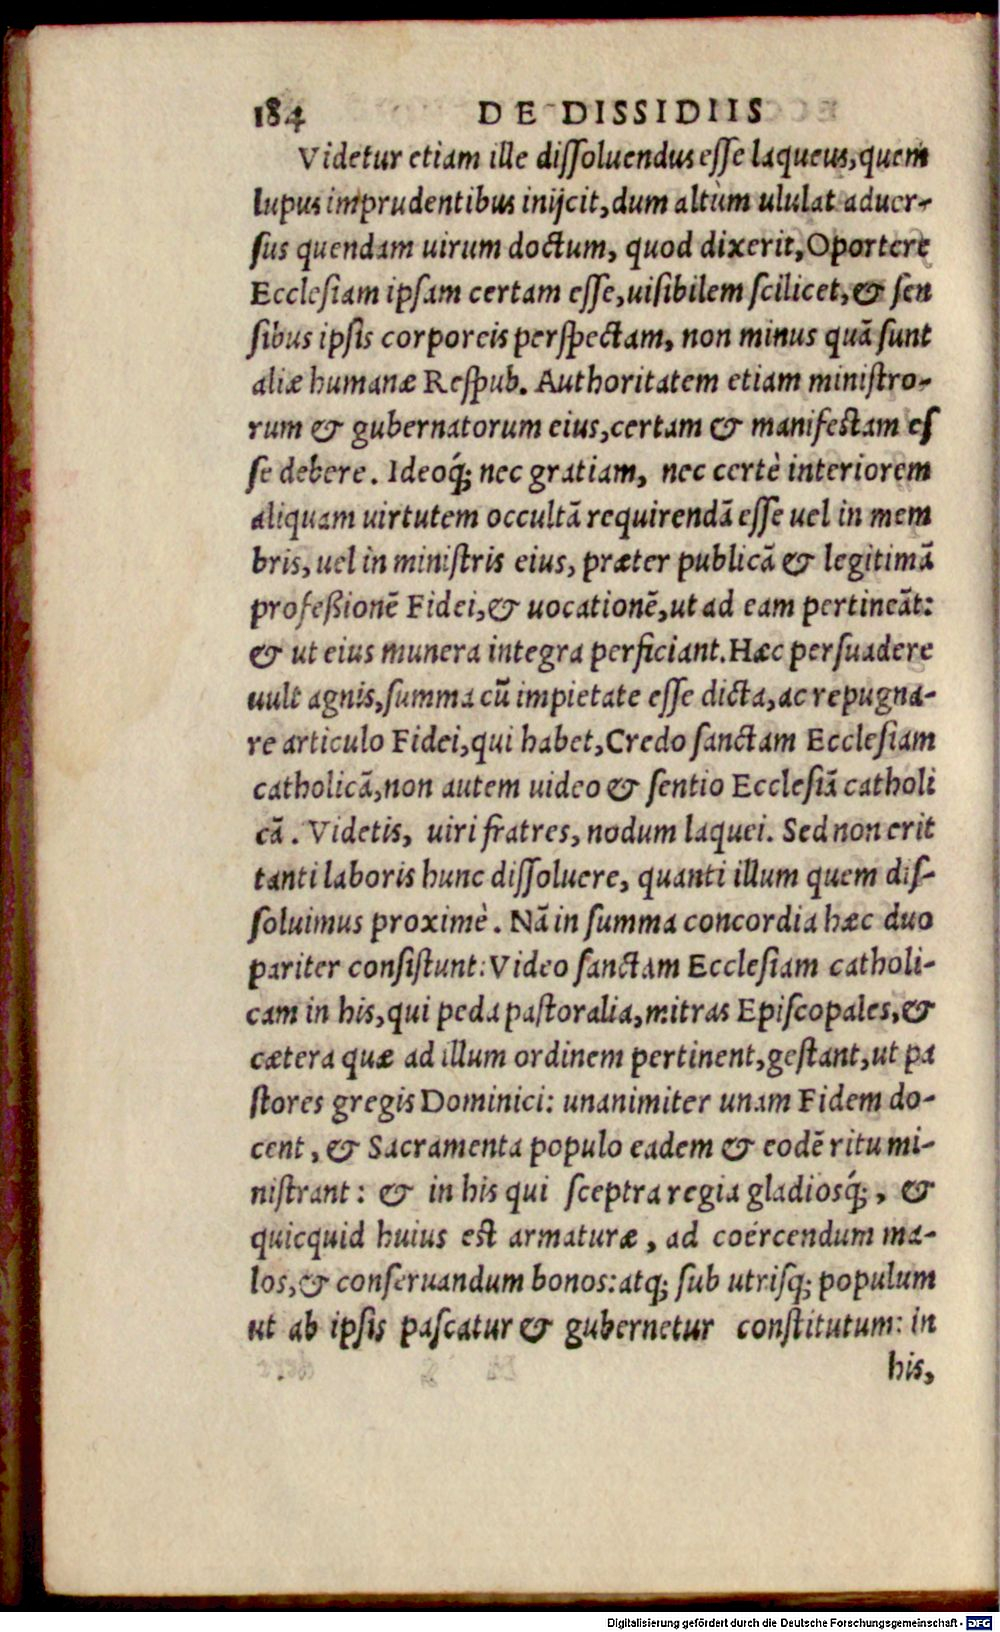 184 DE DISSIDIIS
Videtur etiam ille diſſoluendus eſſe laqueus, quem
lupus imprudentibus iniĳcit, dum altùm ululat aduer-
ſus quendam uirum doctum, quod dixerit, Oportere
Eccleſiam ipſam certam eſſe, uiſibilem ſcilicet, & ſen
ſibus ipſis corporeis perſpectam, non minus quã ſunt
aliæ humanæ Reſpub. Authoritatem etiam miniſtro-
rum & gubernatorum eius, certam & manifeſtam eſ
ſe debere. Ideoq́; nec gratiam, nec certè interiorem
aliquam uirtutem occultã requirendã eſſe uel in mem
bris, uel in miniſtris eius, præter publicã & legitimã
profeßionẽ Fidei, & uocationẽ, ut ad eam pertineãt:
& ut eius munera integra perficiant. Hæc perſuadere
uult agnis, ſumma cũ impietate eſſe dicta, ac repugna-
re articulo Fidei, qui habet, Credo ſanctam Eccleſiam
catholicã, non autem uideo & ſentio Eccleſiã catholi
cã. Videtis, uiri fratres, nodum laquei. Sed non erit
tanti laboris hunc diſſoluere, quanti illum quem diſ-
ſoluimus proximè. Nã in ſumma concordia hæc duo
pariter conſiſtunt: Video ſanctam Eccleſiam catholi-
cam in his, qui peda paſtoralia, mitras Epiſcopales, &
cætera quæ ad illum ordinem pertinent, geſtant, ut pa
ſtores gregis Dominici: unanimiter unam Fidem do-
cent, & Sacramenta populo eadem & eodẽ ritu mi-
niſtrant: & in his qui ſceptra regia gladiosq́;, &
quicquid huius eſt armaturæ, ad coërcendum ma-
los, & conſeruandum bonos: atq; ſub utriſq; populum
ut ab ipſis paſcatur & gubernetur conſtitutum: in
his,
Digitalisierung gefördert durch die Deutsche Forschungsgemeinschaft - DFG